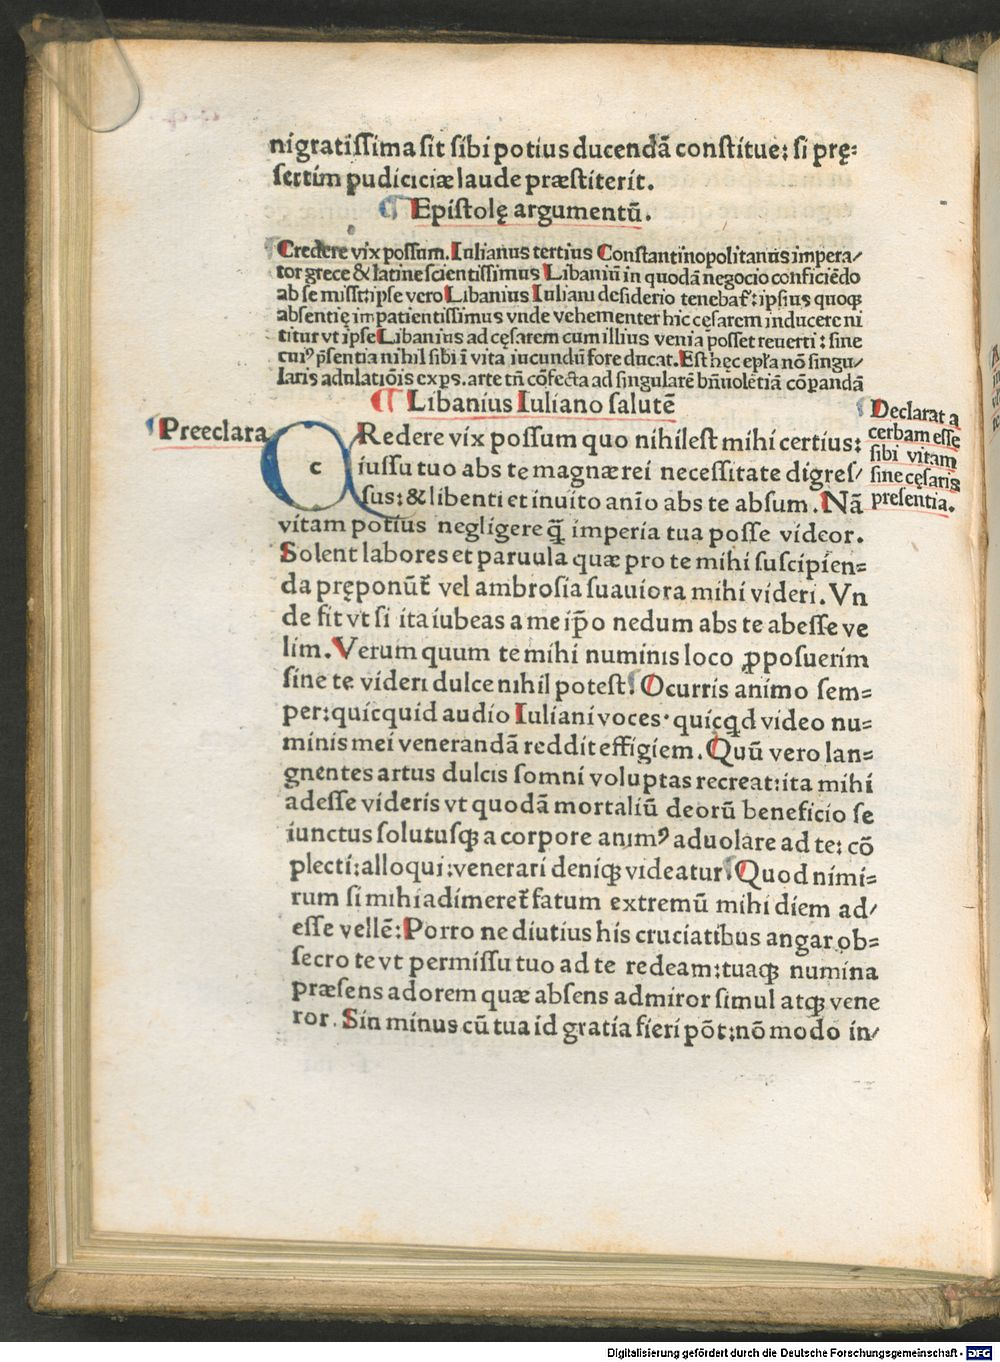 nigratissima sit sibi potius ducendā constitue: si prę=
sertim pudiciciæ laude præstiterit.
¶ Epistolę argumentū.
Credere vix possum. Iulianus tertius Constantinopolitanus impera/
tor grece & latine scientissimus Libaniū in quodā negocio conficiēdo
ab se misit: ipse vero Libanius Iuliani desiderio tenebat᷑: ipsius quoqꝫ
absentię impatientissimus vnde vehementer hic cęsarem inducere ni
titur vt ipse Libanius ad cęsarem cum illius venia posset reuerti: sine
cuiꝰ p̄sentia nihil sibi ī vita iucundū fore ducat. Est hęc epl̄a nō singu/
laris adulatiōis exp̄s. arte tn̄ cōfecta ad singularē bn̄uolētiā cōpandā
¶ Libanius Iuliano salutē
Preeclara
Declarat a
cerbam esse
sibi vitam
sine cęsaris
presentia.
c
Redere vix possum quo nihil est mihi certius:
iussu tuo abs te magnæ rei necessitate digres/
sus: & libenti et inuito anīo abs te absum. Nā
vitam potius negligere q̄ imperia tua posse videor.
Solent labores et paruula quæ pro te mihi suscipien=
da pręponūt᷑ vel ambrosia suauiora mihi videri. Vn
de fit vt si ita iubeas a me ip̄o nedum abs te abesse ve
lim. Verum quum te mihi numinis loco ꝓposuerim
sine te videri dulce nihil potest. Ocurris animo sem=
per: quicquid audio Iuliani voces. quicqd video nu=
minis mei venerandā reddit effigiem. Quū vero lan=
gnentes artus dulcis somni voluptas recreat: ita mihi
adesse videris vt quodā mortaliū deorū beneficio se
iunctus solutusqꝫ a corpore animꝰ aduolare ad te: cō
plecti: alloqui: venerari deniqꝫ videatur. Quod nimi=
rum si mihi adimeret᷑ fatum extremū mihi diem ad/
esse vellē: Porro ne diutius his cruciatibus angar ob=
secro te vt permissu tuo ad te redeam: tuaqꝫ numina
præsens adorem quæ absens admiror simul atqꝫ vene
ror. Sin minus cū tua id gratia fieri pōt: nō modo in/
Digitalisierung gefördert durch die Deutsche Forschungsgemeinschaft - DFG